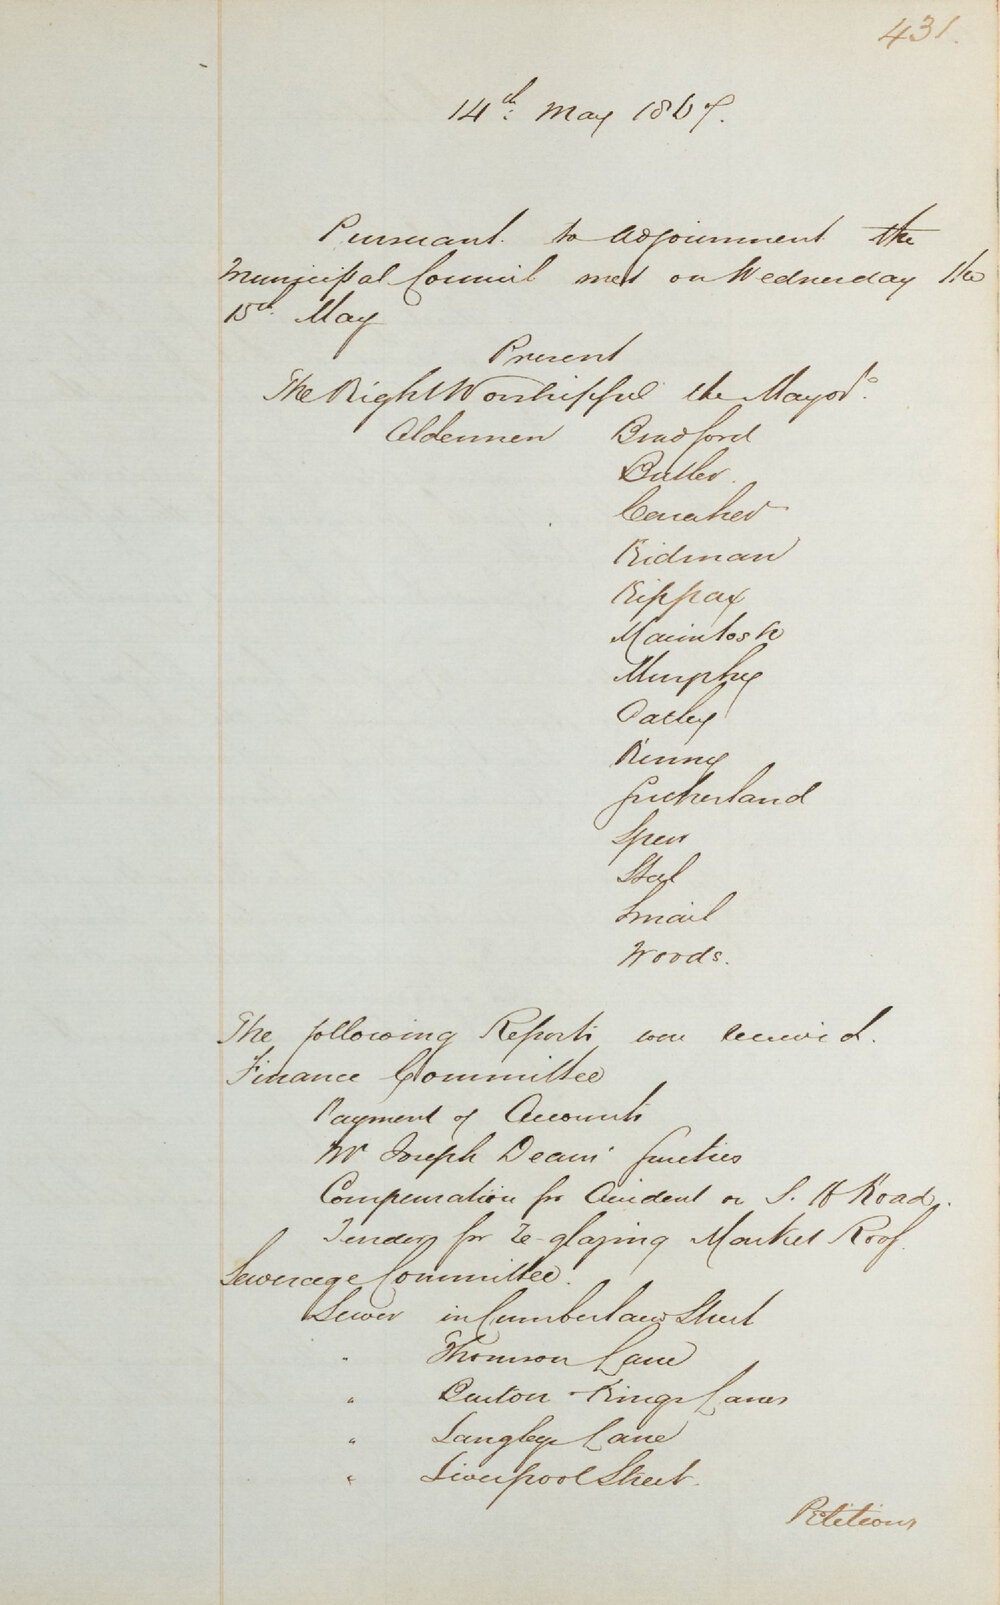 431.
14th May 1867.
Pursuant to adjournment the
Municipal Council met on Wednesday the
15th May
Present
The Right Worshipful the Mayor.
Aldermen Bradford
Butler.
Caraher
Kidman
Kippax
Macintosh
Murphy
Oatley
Renny
Sutherland
Speer
Steel
Smail
Woods.
The following Reports were received.
Finance Committee
Payment of Accounts
Mr Joseph Deans' Sureties
Compensation for Accident on S. H Road.
Tenders for re-glazing Market Roof.
Sewerage Committee.
Sewer in Cumberland Street
" Thomson Lane
" Burton Kings Lanes
" Langley Lane
" Liverpool Street.
Petitions